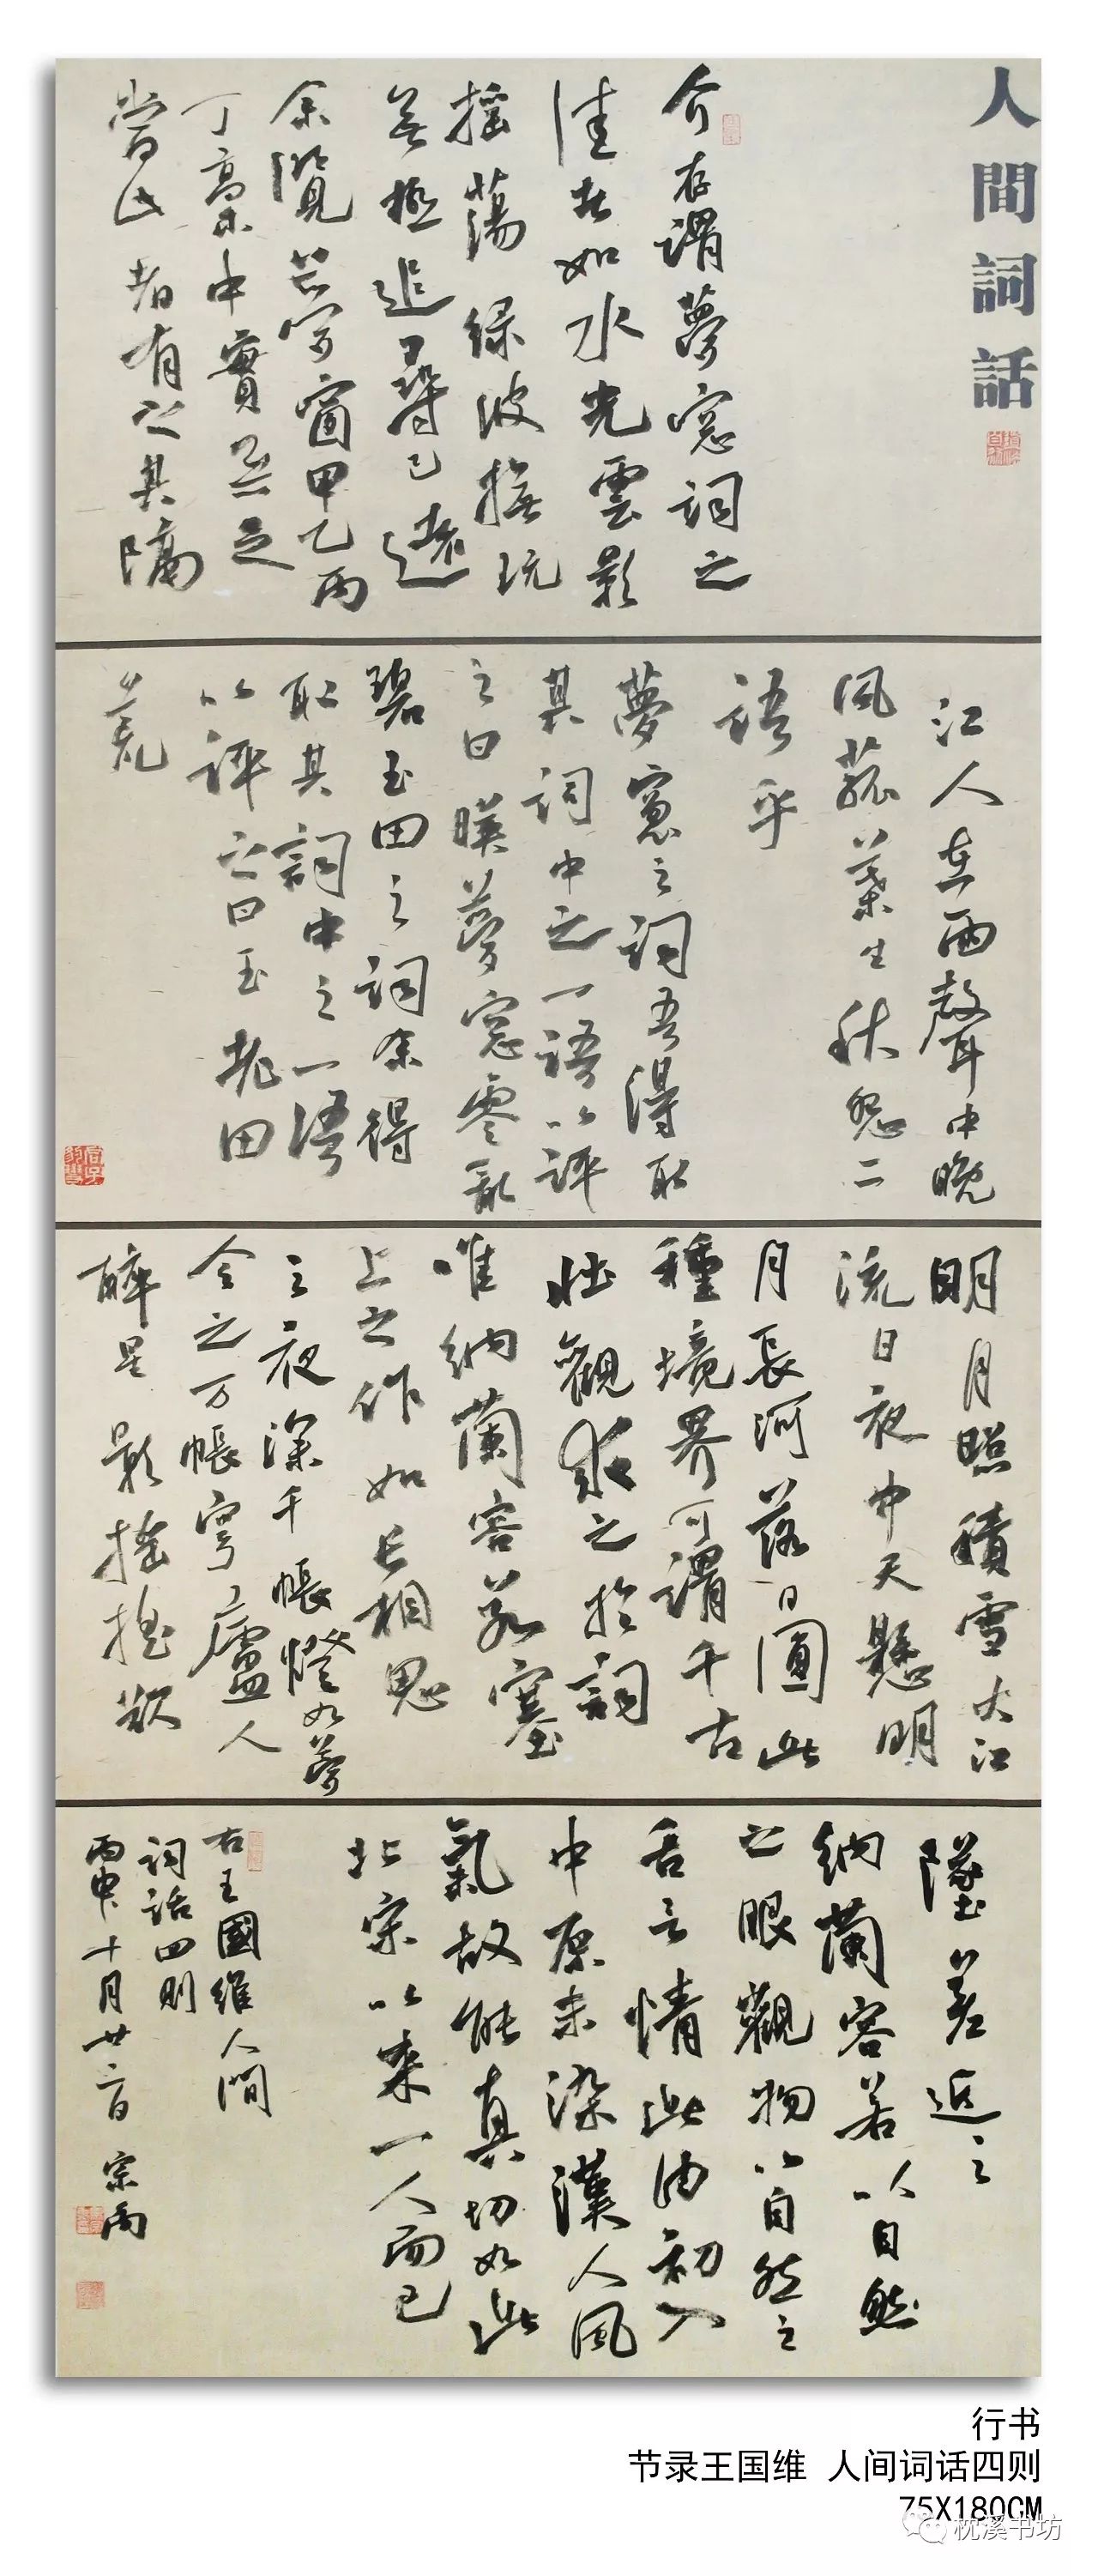 人間詞話
介存謂夢窗詞之
佳者如水光雲影
摇蕩綠波撫玩
無極追尋已遠
余覽夢窗甲乙丙
丁稾中實無足
當此者有之其隔
江人在雨聲中晚
風菰葉生秋怨二
語乎
夢窗之詞吾得取
其詞中之一語以評
之曰映夢窗零亂
碧玉田之詞余得
取其詞中之一語
以評之曰玉老田
荒
明月照積雪大江
流日夜中天懸明
月長河落日圓此
種境界可謂千古
壯觀求之於詞
唯納蘭容若塞
上之作如長相思
之夜深千帳燈如夢
令之万帳穹廬人
醉星影搖搖欲
墜差近之
納蘭容若以自然
之眼觀物以自然之
舌言情此由初入
中原未染漢人風
氣故能真切如此
北宋以來一人而已
右王國維人間
詞話四則
丙申十月廿 日 宗
行书
节录王国维 人间词话四则
75X180CM
枕溪书坊